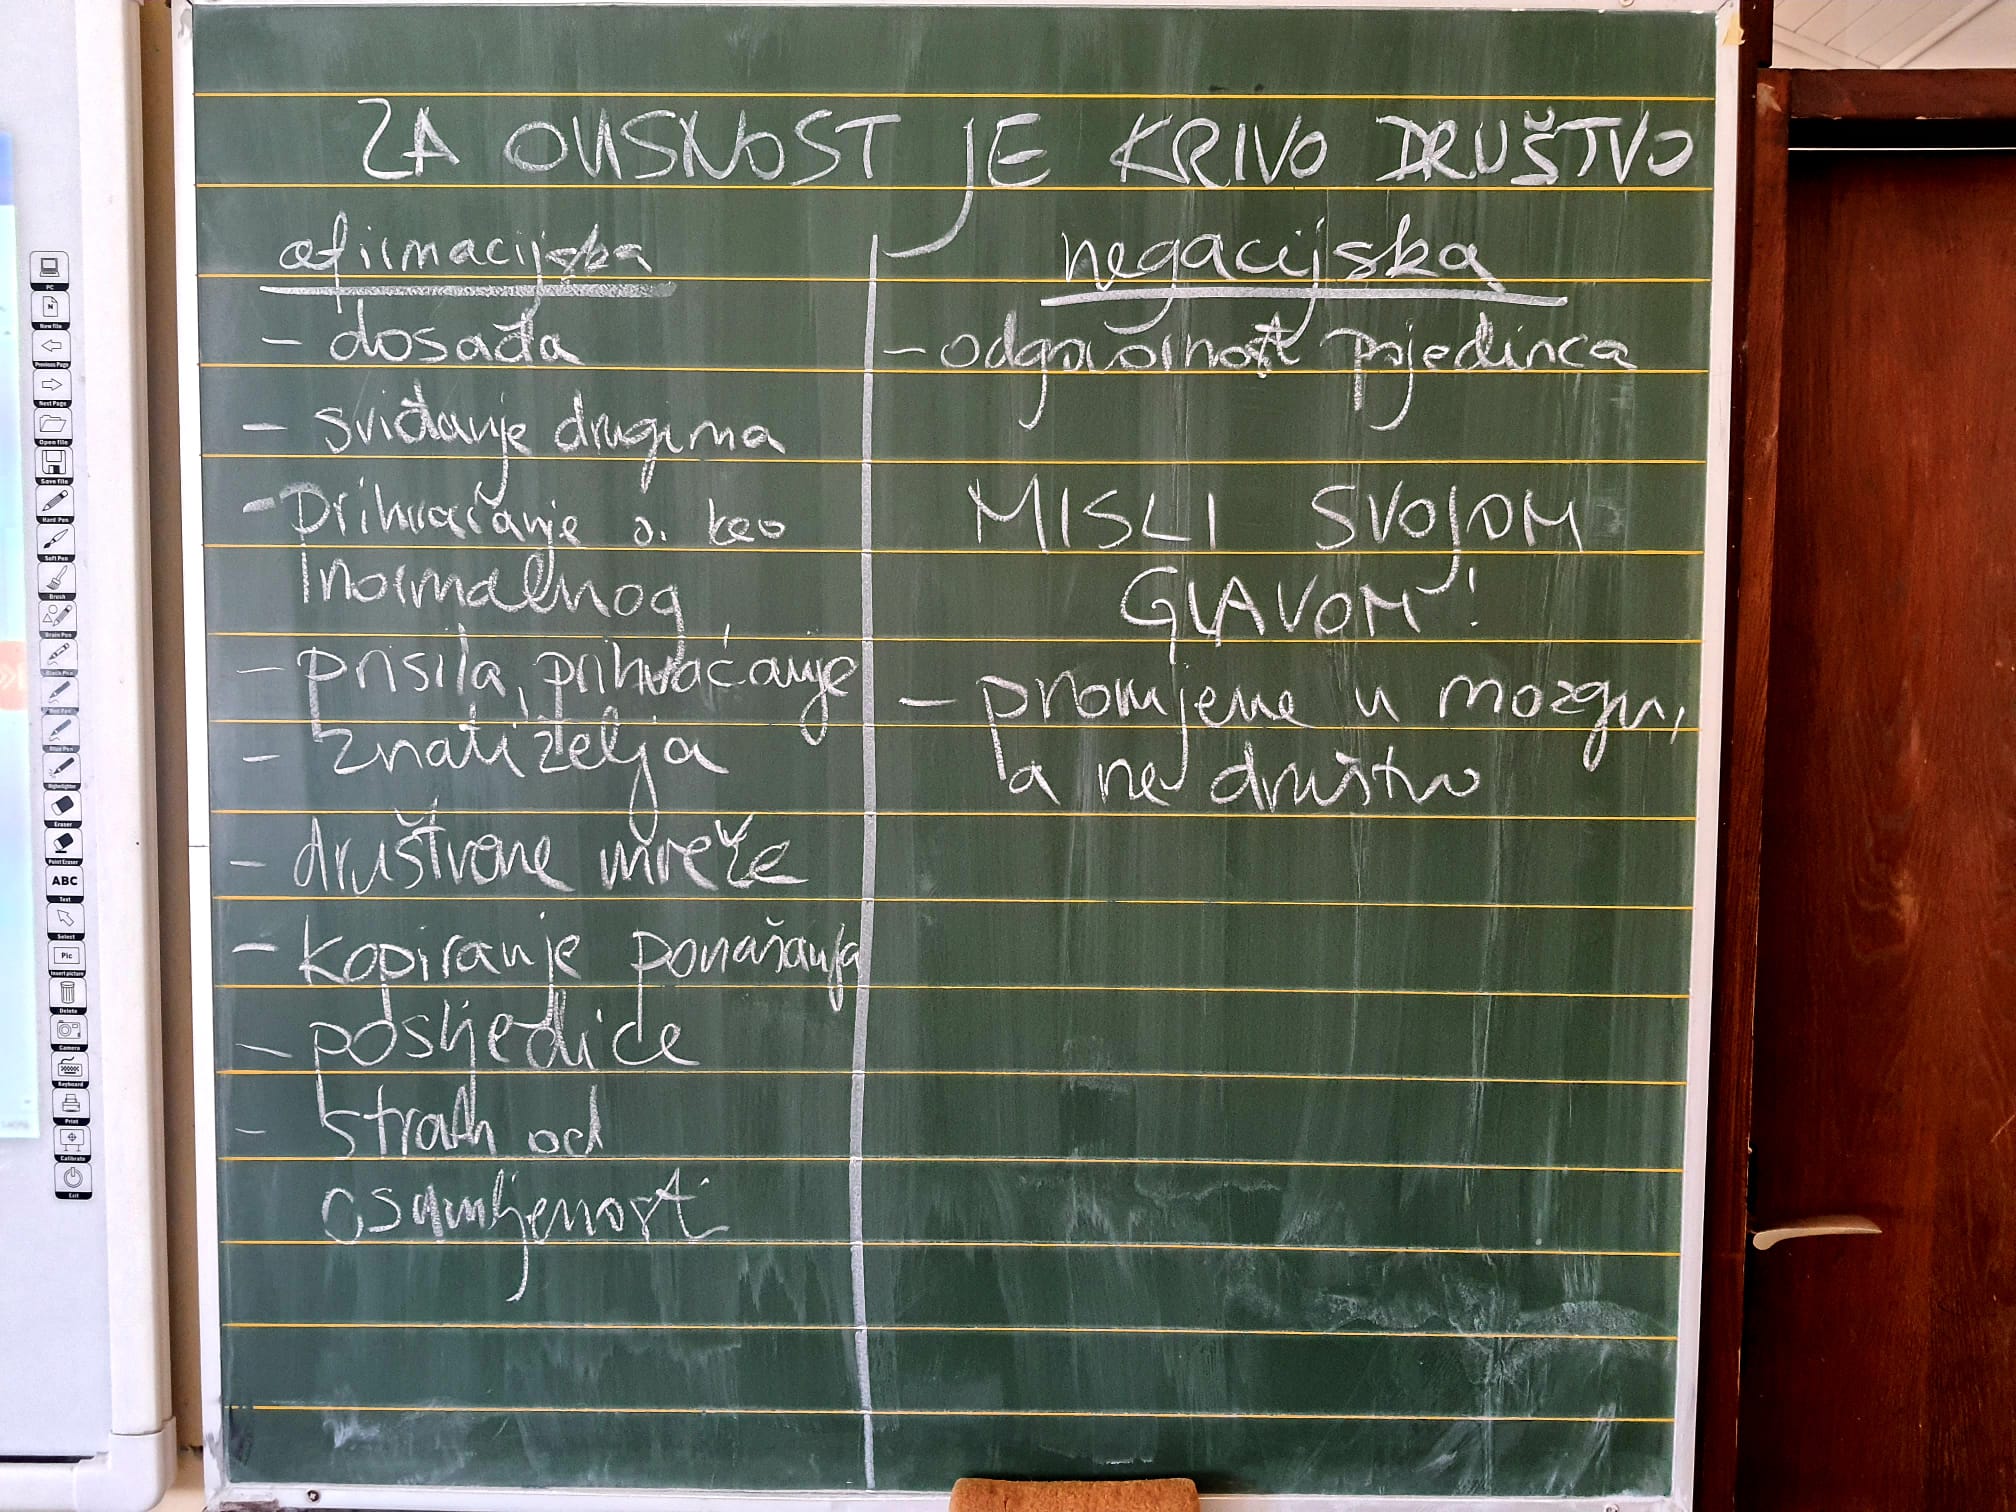 ZA OVISNOST JE KRIVO DRUŠTVO
afirmacijska
- dosađa
- sviđanje drugima
- prihvaćanje o. kao
normalnog
- prisila, prihvaćanje
- znatiželja
- društvene mreže
- kopiranje ponašanja
- posljedice
- strah od
osamljenosti
negacijska
- odgovornost pojedinca
MISLI SVOJOM
GLAVOM!
- promjene u mozgu,
a ne društvo
PC
New file
Previous Page
Next Page
Open file
Save file
Hard Pen
Soft Pen
Brush
Brain Pen
Black Pen
Red Pen
Blue Pen
Highlighter
Eraser
Point Eraser
ABC
Text
Select
Pic
Insert picture
Delete
Camera
Keyboard
Print
Calibrate
Exit